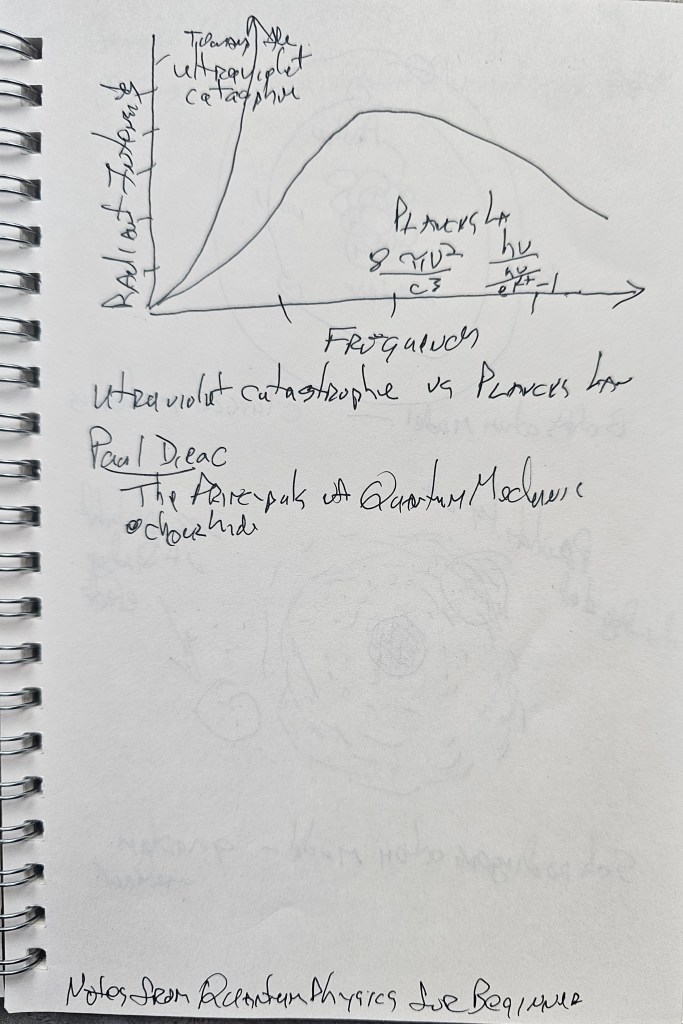 Towards the
ultraviolet
catasphie
Radiant Intensity
Plancks La
8πν² hν
c³ e hν/kT -1
Frequency
Utraviolet catastrophie vs Plancks Law
Paul Dirac
The Principals of Quantum Mechanic
Notes from Quantum Physics for Beginner